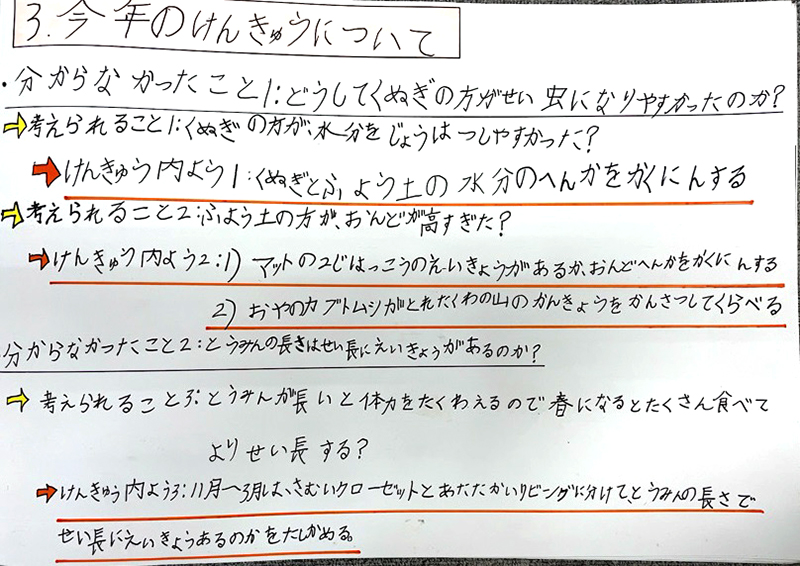 3.今年のけんきゅうについて
・分からなかったこと1:どうしてくぬぎの方がせい虫になりやすかったのか?
⇨考えられること1:くぬぎの方が、水分をじょうはつしやすかった?
➡けんきゅう内よう1:くぬぎとふよう土の水分のへんかをかくにんする
⇨考えられること2:ふよう土の方が、おんどが高すぎた?
➡けんきゅう内よう2:1) マットの2じはっこうのえいきょうがあるか、おんどへんかをかくにんする
2) おやのカブトムシがとれたくわの山のかんきょうをかんさつしてくらべる
・分からなかったこと2:とうみんの長さはせい長にえいきょうがあるのか?
⇨考えられること3:とうみんが長いと体力をたくわえるので春になるとたくさん食べて
よりせい長する?
➡けんきゅう内よう3:11月〜3月は、さむいクローゼットとあたたかいリビングに分けて、とうみんの長さで
せい長にえいきょうあるのかをたしかめる。